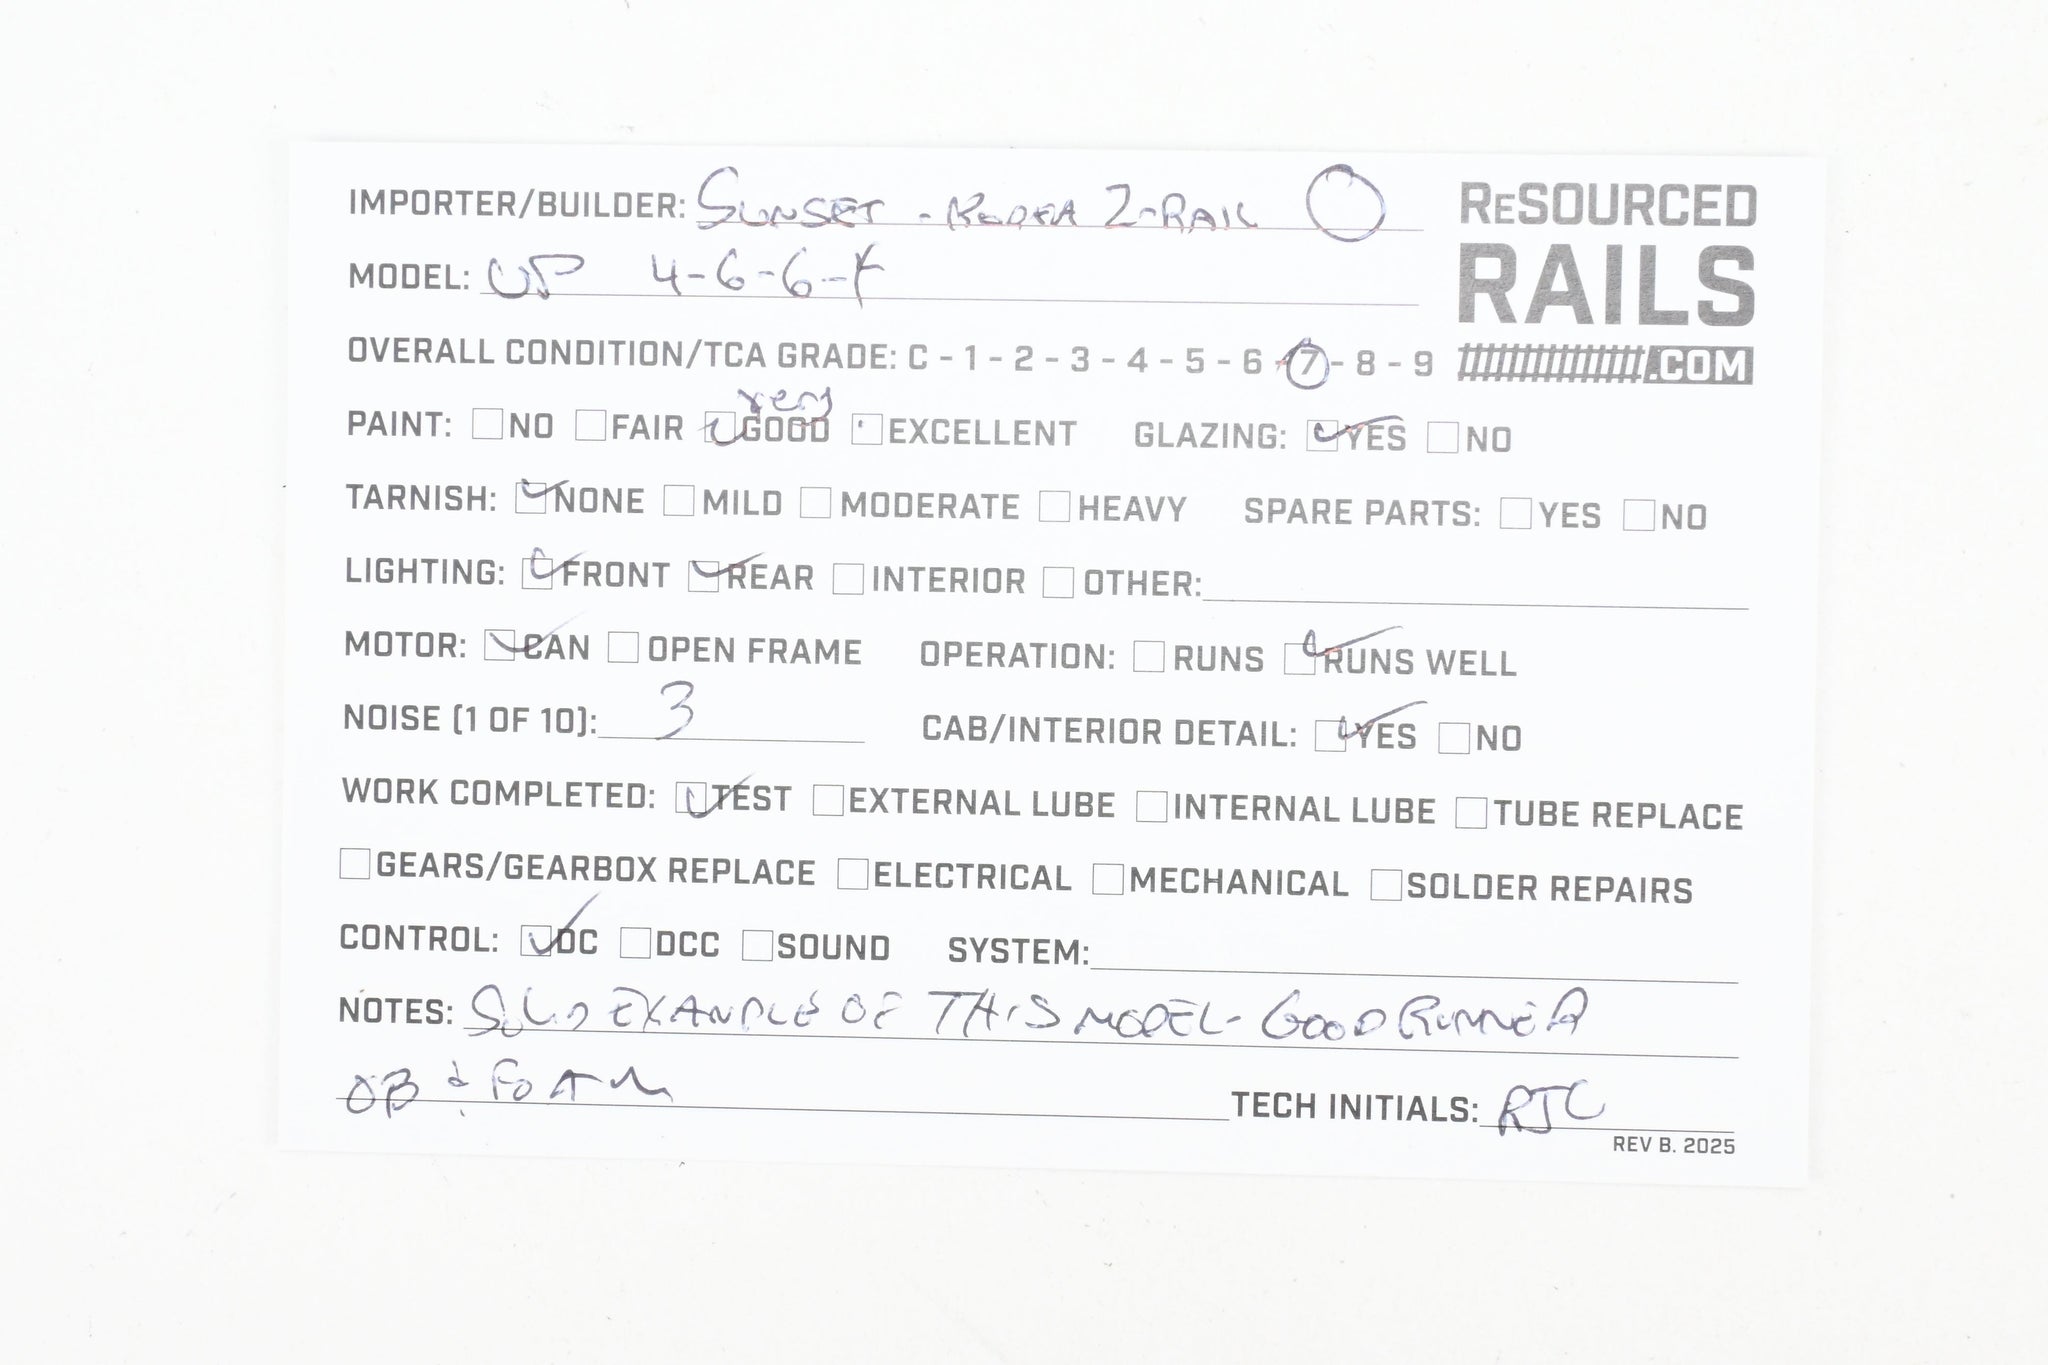 IMPORTER/BUILDER: SUNSET - KOREA 2-RAIL O
ReSOURCED
RAILS
.COM
MODEL: UP 4-6-6-4
OVERALL CONDITION/TCA GRADE: C - 1 - 2 - 3 - 4 - 5 - 6 - 7 - 8 - 9
very
PAINT: NO FAIR GOOD EXCELLENT GLAZING: YES NO
TARNISH: NONE MILD MODERATE HEAVY SPARE PARTS: YES NO
LIGHTING: FRONT REAR INTERIOR OTHER:
MOTOR: CAN OPEN FRAME OPERATION: RUNS RUNS WELL
NOISE (1 OF 10): 3 CAB/INTERIOR DETAIL: YES NO
WORK COMPLETED: TEST EXTERNAL LUBE INTERNAL LUBE TUBE REPLACE
GEARS/GEARBOX REPLACE ELECTRICAL MECHANICAL SOLDER REPAIRS
CONTROL: DC DCC SOUND SYSTEM:
NOTES: SOLID EXAMPLE OF THIS MODEL - GOOD RUNNER
OB & FOAM TECH INITIALS: RJC
REV B. 2025